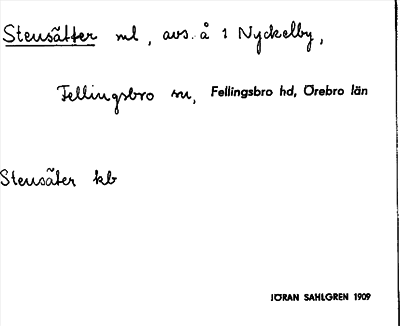 Stensätter ml, avs. å 1 Nyckelby,
Fellingsbro sn, Fellingsbro hd, Örebro län
Stensäter kb
JÖRAN SAHLGREN 1909